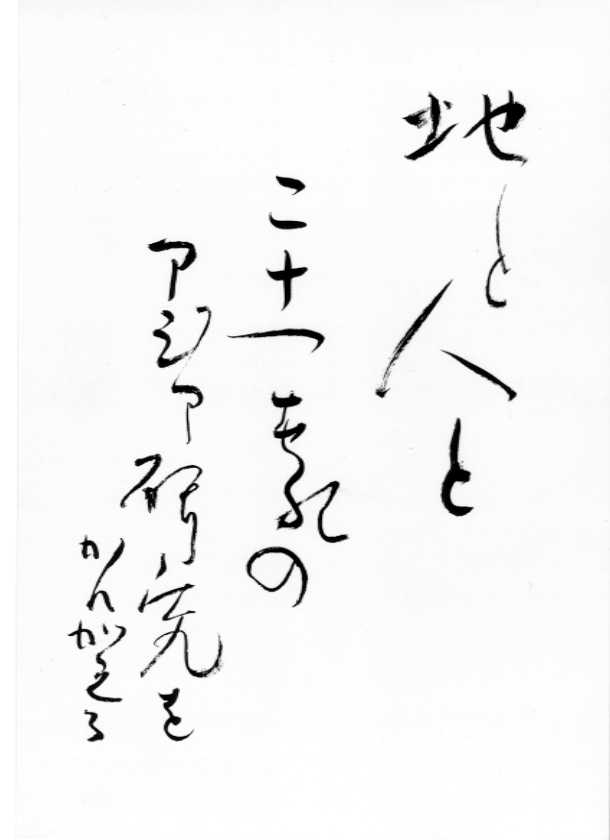 地と人と
二十一世紀の
アジア研究を
かんがえる